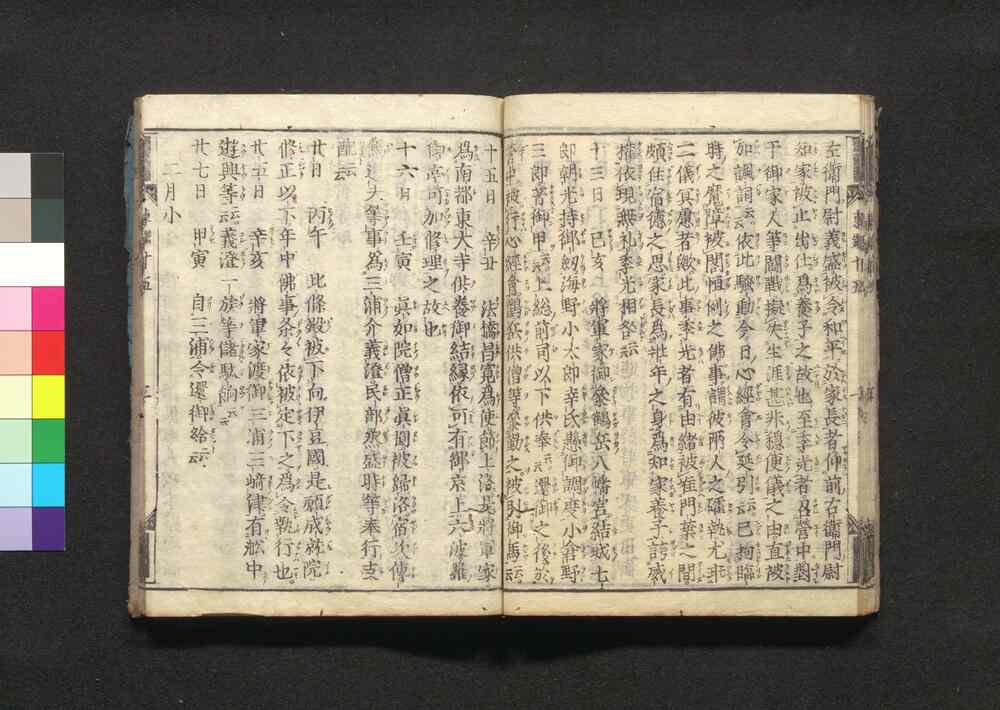 左衛門尉義盛被令和平於家長者仰前右衛門尉
知家被止出仕為養子之故也至季光者召營中對
于御家人等鬪戰擬失生涯甚非穩便儀之由直被
加諷詞云云依此騷動今日心經會令延引云云已拘臨
時之魔障被閣恒例之佛事誠彼兩人之確執尤耻
二儀冥慮者歟此事季光者有由緒被准門葉之間
頗住宿德之思家長為壯年之身為知家養子誇威
權依現無礼季光相咎云云
十三日 己亥 將軍家御參鶴岳八幡宮結城七
郎朝光持御劔海野小太郎幸氏懸御調度小倉野
三郎著御甲云云上総前司以下供奉云云還御之後於
營中被行心經會鶴岳供僧等參勤之被引御馬云云
十五日 辛丑 法橋昌寛為使節上洛是將軍家
為南都東大寺供養御結縁依可有御京上六波羅
御亭可加修理之故也
十六日 壬寅 眞如院僧正眞圓被歸洛宿次傳
馬送夫等事為三浦介義澄民部丞盛時等奉行支
配云云
廿日 丙午 此條殿被下向伊豆國是願成就院
修正以下年中佛事条々依被定下之為令執行也
廿五日 辛亥 將軍家渡御三浦三﨑津有舩中
遊興等云云義澄一族等儲駄餉云云
廿七日 甲寅 自三浦令還御給云云
二月小